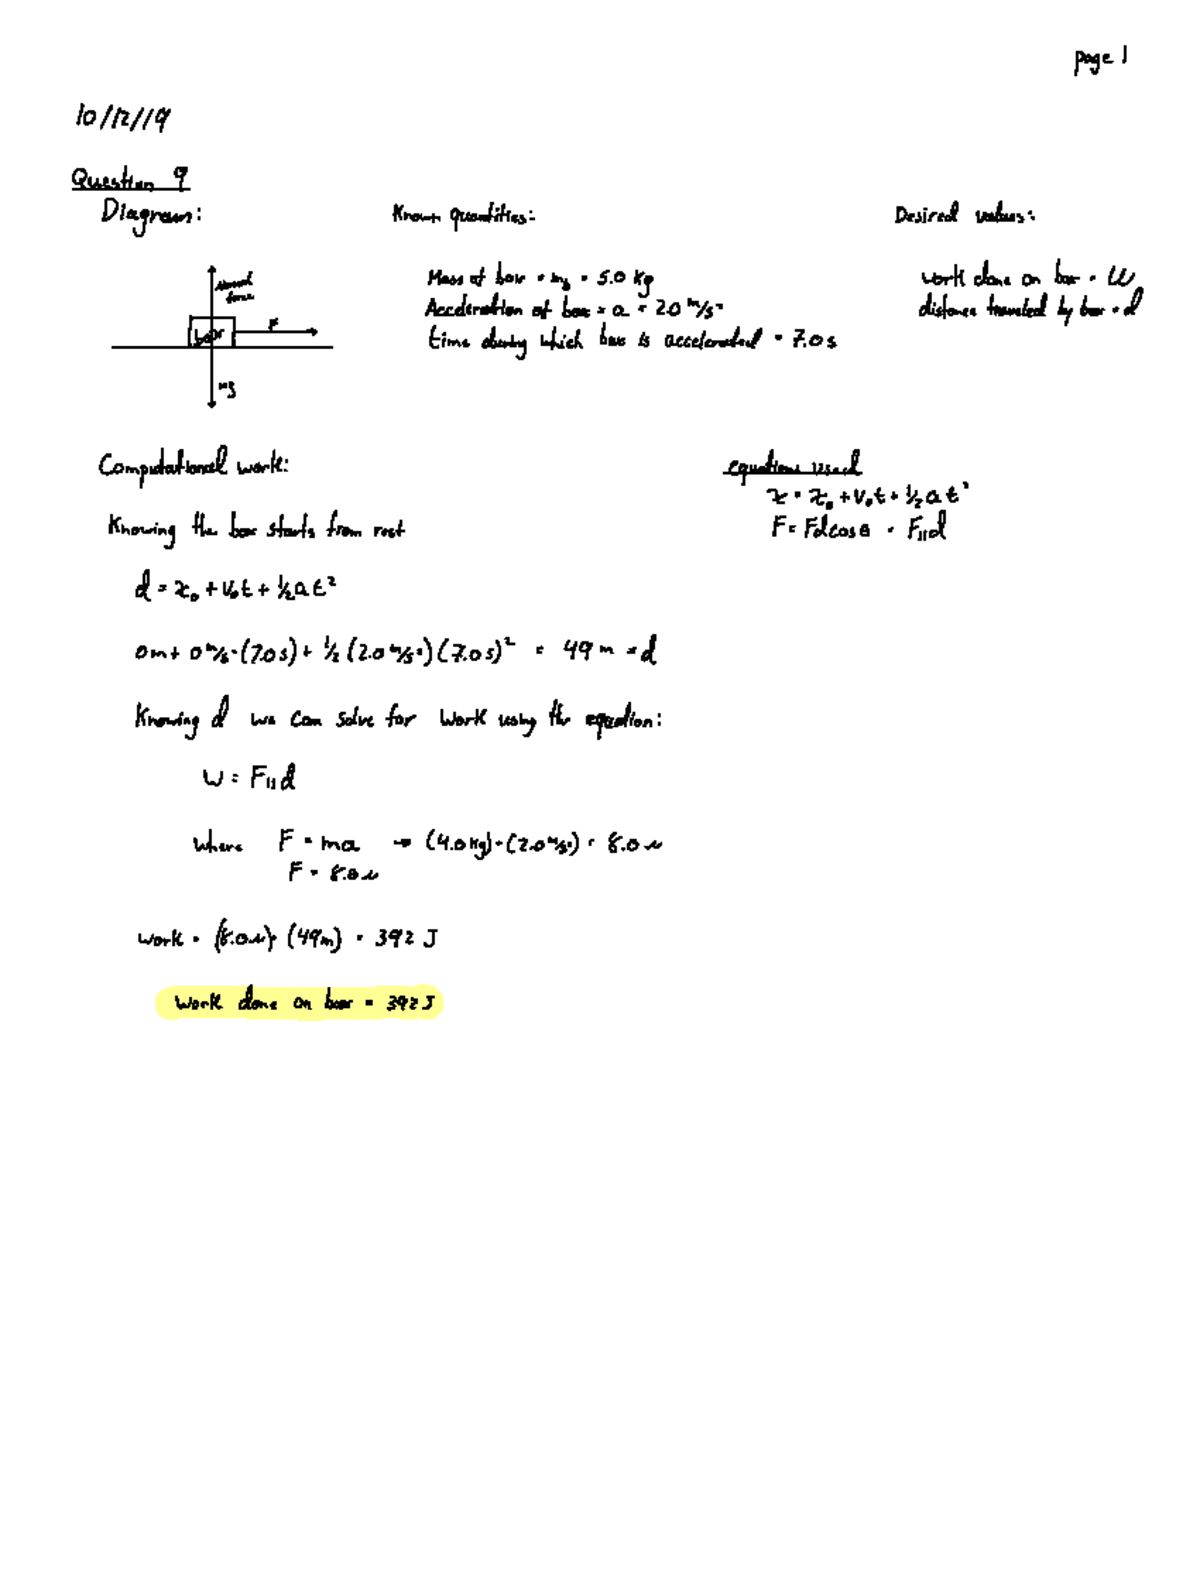 page 1
10/12/19
Question 9
Diagram:
Known quantities:
Desired values:
Normal force
F
box
mg
Mass of box = m_b = 5.0 kg
Acceleration of box = a = 2.0 m/s²
time during which box is accelerated = 7.0 s
work done on box = W
distance traveled by box = d
Computational work:
equations used
x = x₀ + v₀t + ½at²
F = Fdcosθ = F∥d
Knowing the box starts from rest
d = x₀ + v₀t + ½at²
0m + 0 m/s·(7.0s) + ½ (2.0 m/s²)(7.0s)² = 49 m = d
Knowing d we can solve for work using the equation:
W = F∥d
where F = ma → (4.0 kg)·(2.0 m/s²) = 8.0 N
F = 8.0 N
work = (8.0N)·(49m) = 392 J
Work done on box = 392 J